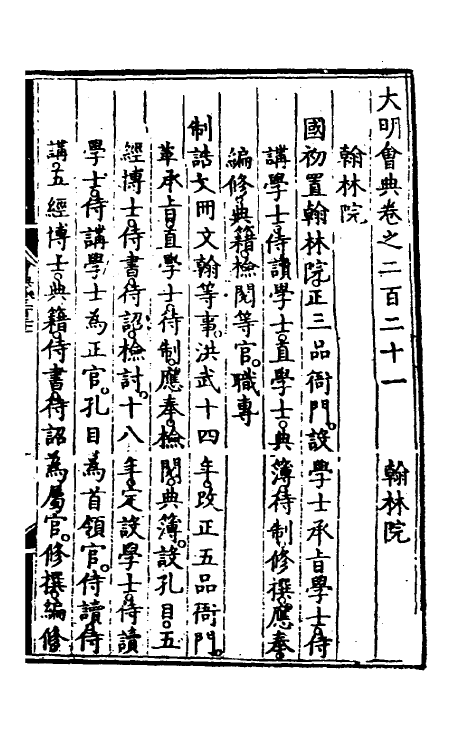 大明會典卷之二百二十一　翰林院
翰林院
國初置翰林院正三品衙門。設學士承旨學士侍
講學士侍讀學士直學士典簿待制修撰應奉
編修典籍檢閱等官。職專
制誥文冊文翰等事。洪武十四年。改正五品衙門。
革承旨直學士待制應奉檢閱典簿。設孔目五
經博士侍書待詔檢討。十八年。定設學士侍讀
學士侍講學士為正官。孔目為首領官。侍讀侍
講五經博士典籍侍書待詔為屬官。修撰編修